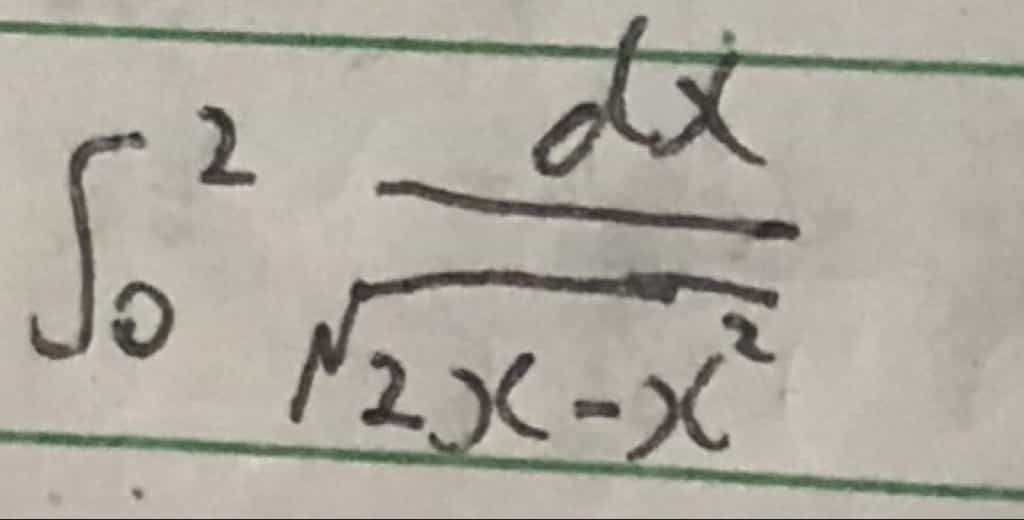 ∫₀² dx / √(2x - x²)